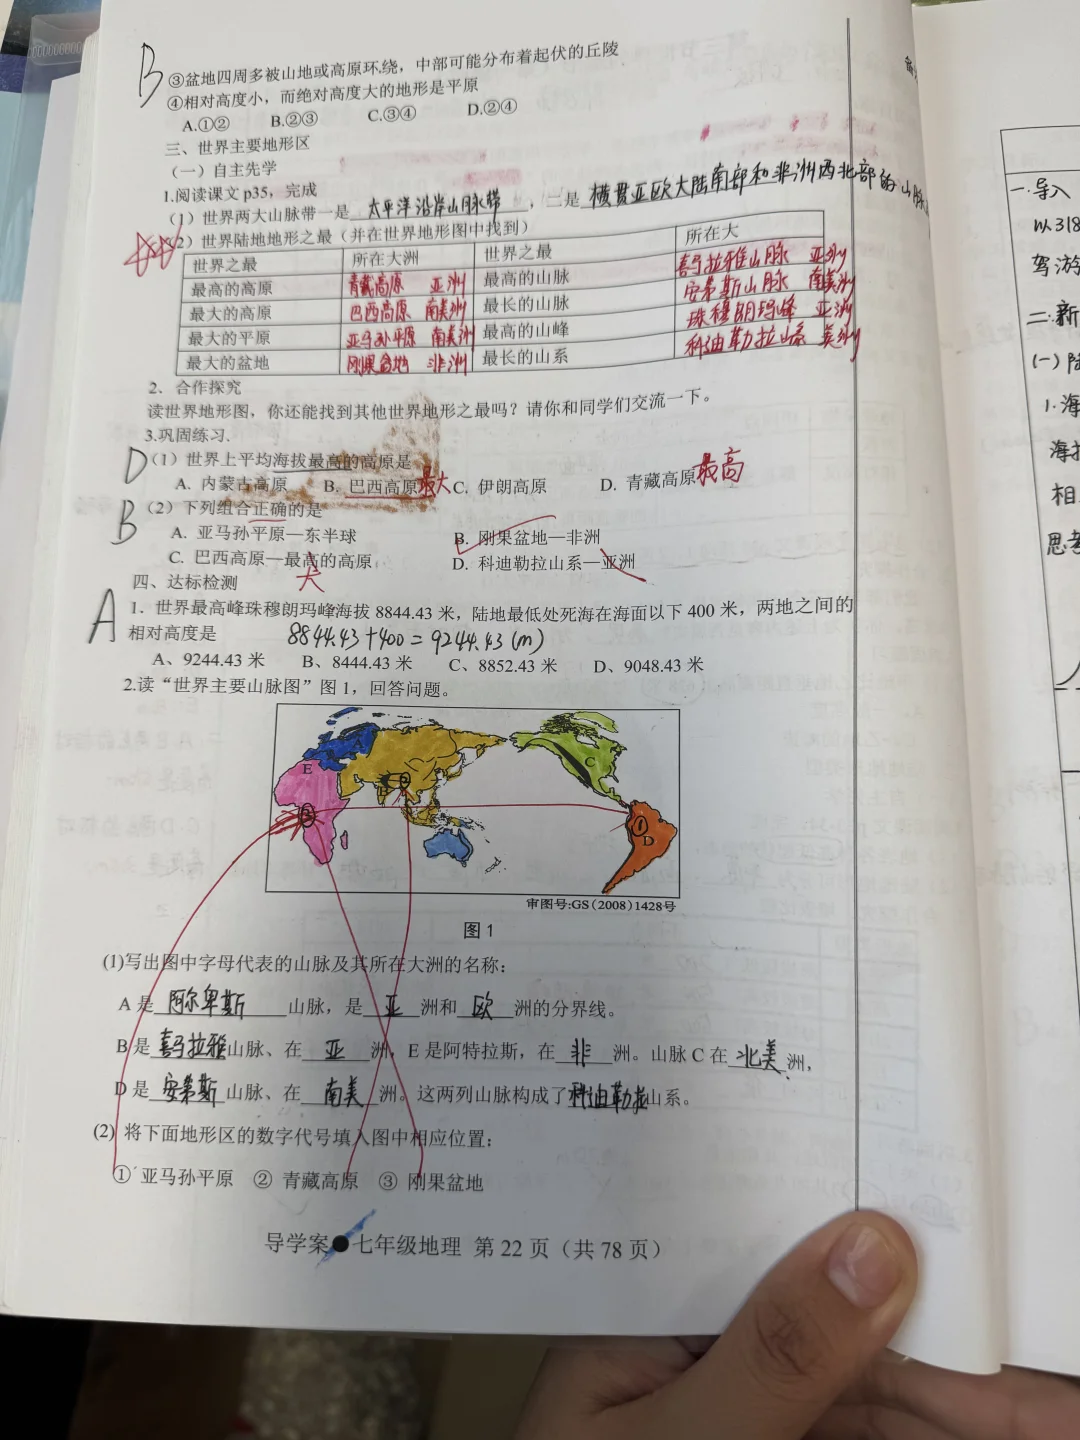 B
③盆地四周多被山地或高原环绕，中部可能分布着起伏的丘陵
④相对高度小，而绝对高度大的地形是平原
A.①② B.②③ C.③④ D.②④
三、世界主要地形区
（一）自主先学
1.阅读课文 p35，完成
（1）世界两大山脉带一是 太平洋沿岸山脉带 ，二是 横贯亚欧大陆南部和非洲西北部的山脉
（2）世界陆地地形之最（并在世界地形图中找到）
世界之最 所在大洲 世界之最 所在大
最高的高原 青藏高原 亚洲 最高的山脉 喜马拉雅山脉 亚洲
最大的高原 巴西高原 南美洲 最长的山脉 安第斯山脉 南美洲
最大的平原 亚马孙平原 南美洲 最高的山峰 珠穆朗玛峰 亚洲
最大的盆地 刚果盆地 非洲 最长的山系 科迪勒拉山系 美洲
2．合作探究
读世界地形图，你还能找到其他世界地形之最吗？请你和同学们交流一下。
3.巩固练习、
D（1）世界上平均海拔最高的高原是
A. 内蒙古高原 B. 巴西高原 最大 C. 伊朗高原 D. 青藏高原 最高
B（2）下列组合正确的是
A. 亚马孙平原—东半球 B. 刚果盆地—非洲
C. 巴西高原—最高的高原 D. 科迪勒拉山系—亚洲
大
四、达标检测
A 1．世界最高峰珠穆朗玛峰海拔 8844.43 米，陆地最低处死海在海面以下 400 米，两地之间的
相对高度是 8844.43+400=9244.43(m)
A、9244.43 米 B、8444.43 米 C、8852.43 米 D、9048.43 米
2.读“世界主要山脉图”图 1，回答问题。
A
E
B
C
①
D
审图号:GS(2008)1428号
图 1
(1)写出图中字母代表的山脉及其所在大洲的名称：
A 是 阿尔卑斯 山脉，是 亚 洲和 欧 洲的分界线。
B 是 喜马拉雅 山脉、在 亚 洲，E 是阿特拉斯，在 非 洲。山脉 C 在 北美 洲，
D 是 安第斯 山脉、在 南美 洲。这两列山脉构成了 科迪勒拉 山系。
(2) 将下面地形区的数字代号填入图中相应位置：
① 亚马孙平原 ② 青藏高原 ③ 刚果盆地
导学案●七年级地理 第 22 页（共 78 页）
一.导入
以318
驾游
二.新
(一)陆
1.海
海拔
相
思考